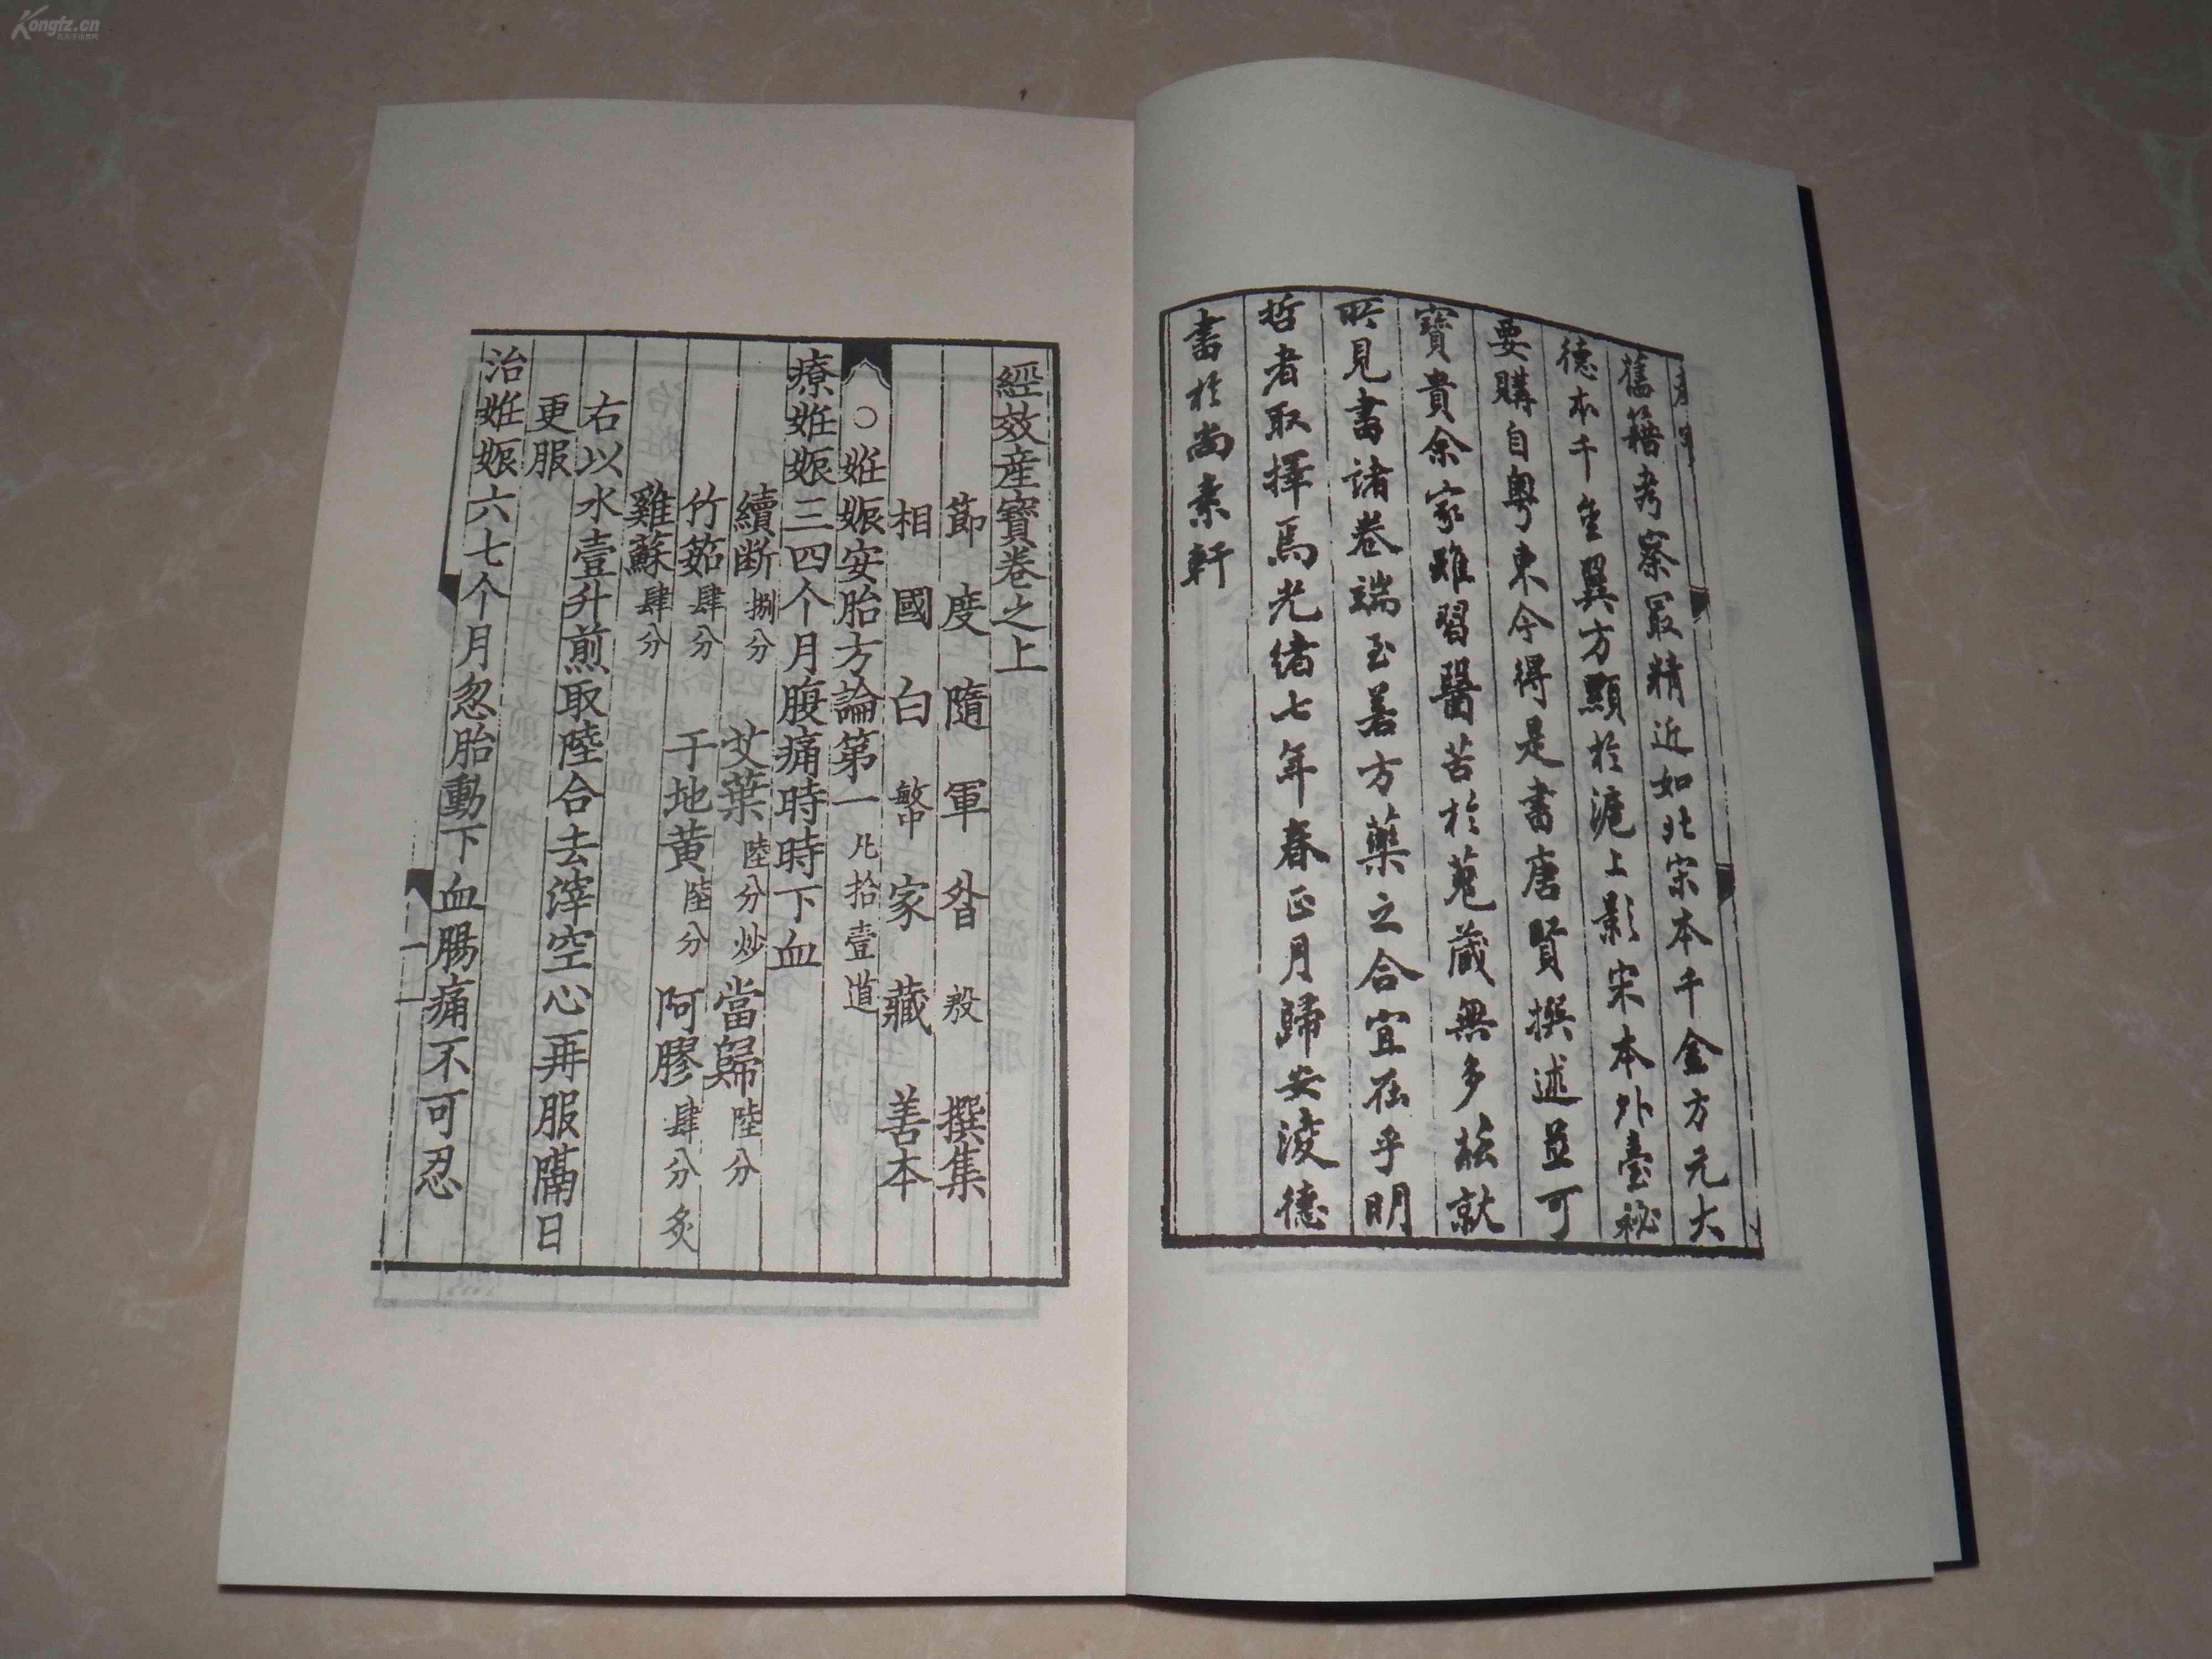 舊籍考察㝡精近如北宋本千金方元大
德本千金翼方顯於滬上影宋本外臺祕
要購自粵東今得是書唐賢撰述並可
寶貴余家雖習醫苦於蒐藏無多茲就
所見書諸卷端至著方藥之合宜在乎明
哲者取擇焉光緒七年春正月歸安淩德
書於尚素軒
經效産寶卷之上
節度隨軍昝殷撰集
相國白敏中家藏善本
○姙娠安胎方論第一凡拾壹道
療姙娠三四个月腹痛時時下血
續断捌分 艾葉陸分炒 當歸陸分
竹筎肆分 干地黄陸分 阿膠肆分炙
雞蘇肆分
右以水壹升煎取陸合去滓空心再服隔日
更服
治姙娠六七个月忽胎動下血腸痛不可忍
一
Kongfz.cn